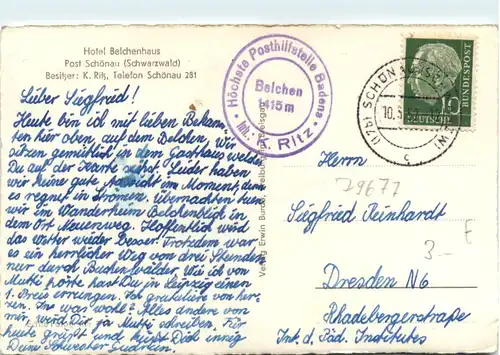 Hotel Belchenhaus
Post Schönau (Schwarzwald)
Besitzer: K. Ritz, Telefon Schönau 281
Höchste Posthilfstelle Badens
Belchen
1415 m
Inh.: K. Ritz
10
DEUTSCHE BUNDESPOST
(17b) SCHÖNAU
10.5.
c
Lieber Siegfried!
Heute bin ich mit lieben Bekann-
ten hier oben, auf dem Belchen, wir
sitzen gemütlich in dem Gasthaus welches
Du auf der Karte siehst. Leider haben
wir keine gute Aussicht im Moment, denn
es regnet in Strömen. Übernachten tun
wir im Wanderheim Belchenblick in
dem Ort Neuenweg. Hoffentlich wird
das Wetter wieder besser. Trotzdem war
es ein herrlicher Weg von drei Stunden
nur durch Buchenwälder. Wie ich von
Mutti hörte hast Du in Leipzig einen
1. Preis errungen. Ich gratuliere von her-
zen. In was wohl? Alles andere von
mir, wird Dir ja Mutti schreiben. Für
heute grüßt und küßt Dich innig
Deine Schwester Gudrun.
Verlag Erwin Burda, Freiburg-Breisgau
Herrn
29677
Siegfried Reinhardt
3.- E
Dresden N6
Rhadebergerstraße
Int. d. Päd. Institutes